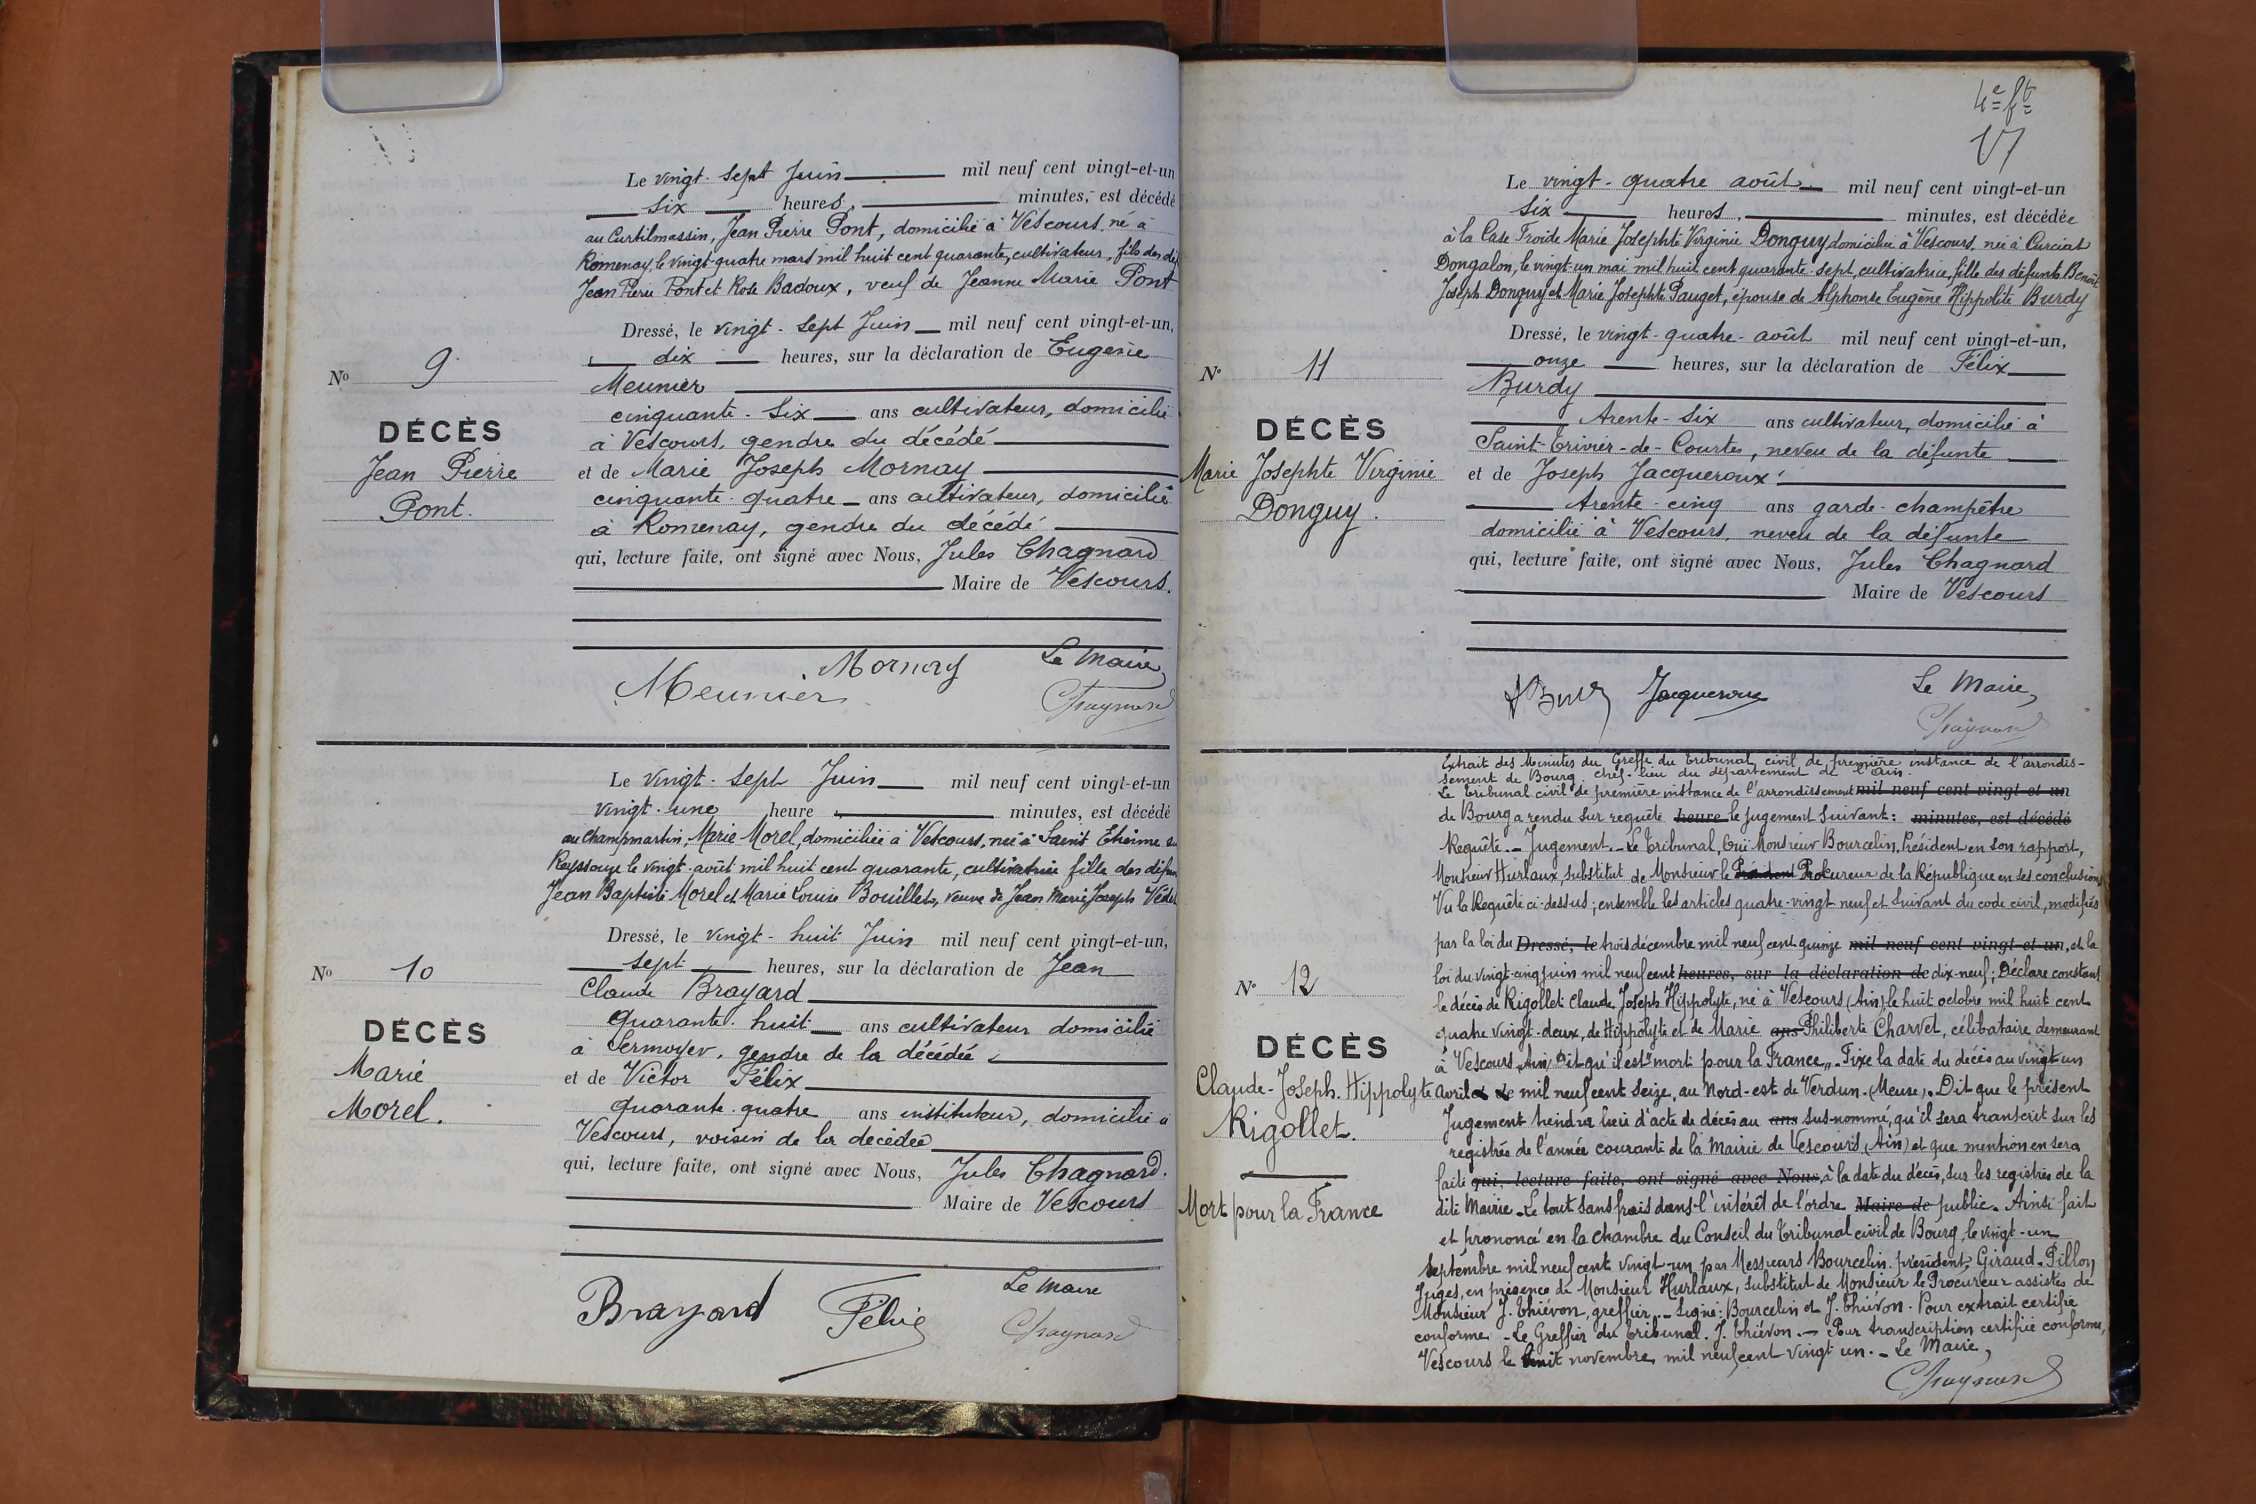 Le vingt-sept Juin mil neuf cent vingt-et-un
six heures, minutes, est décédé
au Curtilmassin, Jean Pierre Pont, domicilié à Vescours, né à
Romenay, le vingt-quatre mars mil huit cent quarante, cultivateur, fils des
Jean Pierre Pont et Rose Badoux, veuf de Jeanne Marie Pont
Dressé, le vingt-sept Juin mil neuf cent vingt-et-un,
dix heures, sur la déclaration de Eugène
Meunier
cinquante-six ans cultivateur, domicilié
à Vescours, gendre du décédé
et de Marie Joseph Mornay
cinquante-quatre ans cultivateur, domicilié
à Romenay, gendre du décédé
qui, lecture faite, ont signé avec Nous, Jules Chagnard
Maire de Vescours.
No 9
DÉCÈS
Jean Pierre
Pont.
Meunier Mornay Le Maire,
Chagnard
Le vingt-sept Juin mil neuf cent vingt-et-un
vingt-une heure minutes, est décédé
au Champmartin, Marie Morel, domiciliée à Vescours, née à Saint Etienne
Reyssouze le vingt août mil huit cent quarante, cultivatrice fille des
Jean Baptiste Morel et Marie Louise Bouillet, veuve de Jean Marie Joseph
Dressé, le vingt-huit Juin mil neuf cent vingt-et-un,
sept heures, sur la déclaration de Jean
Claude Brayard
quarante-huit ans cultivateur domicilié
à Sermoyer, gendre de la décédée
et de Victor Félix
quarante-quatre ans instituteur, domicilié à
Vescours, voisin de la décédée
qui, lecture faite, ont signé avec Nous, Jules Chagnard.
Maire de Vescours
No 10
DÉCÈS
Marie
Morel.
Brayard Félix Le Maire
Chagnard
4e ft
Le vingt-quatre août mil neuf cent vingt-et-un
six heures, minutes, est décédée
à la Case Froide Marie Josephte Virginie Donguy domiciliée à Vescours, née à Curciat
Dongalon, le vingt-un mai mil huit cent quarante-sept, cultivatrice, fille des défunts Benoit
Joseph Donguy et Marie Josephte Pauget, épouse de Alphonse Eugène Hippolite Burdy
Dressé, le vingt-quatre août mil neuf cent vingt-et-un,
onze heures, sur la déclaration de Félix
Burdy
trente-six ans cultivateur, domicilié à
Saint-Trivier-de-Courtes, neveu de la défunte
et de Joseph Jacqueroux
trente-cinq ans garde-champêtre
domicilié à Vescours, neveu de la défunte
qui, lecture faite, ont signé avec Nous, Jules Chagnard
Maire de Vescours
No 11
DÉCÈS
Marie Josephte Virginie
Donguy.
Jacqueroux Le Maire,
Chagnard
Extrait des Minutes du Greffe du Tribunal civil de première instance de l'arrondis-
sement de Bourg, chef-lieu du département de l'Ain.
Le Tribunal civil de première instance de l'arrondissement mil neuf cent vingt et un
de Bourg a rendu sur requête heure le jugement suivant: minutes, est décédé
Requête. - Jugement. - Le Tribunal, Ouï Monsieur Bourcelin, Président en son rapport,
Monsieur Hurlaux, substitut de Monsieur le Président Procureur de la République en ses conclusions
Vu la Requête ci-dessus; ensemble les articles quatre-vingt neuf et suivant du code civil, modifiés
par la loi du Dressé, le trois décembre mil neuf cent quinze mil neuf cent vingt et un, et la
loi du vingt-cinq juin mil neuf cent heures, sur la déclaration de dix-neuf; Déclare constant
le décès de Rigollet Claude Joseph Hippolyte, né à Vescours (Ain), le huit octobre mil huit cent
quatre vingt-deux, de Hippolyte et de Marie ans Philiberte Charvet, célibataire demeurant
à Vescours, Ain; Dit qu'il est "mort pour la France". Fixe la date du décès au vingt-un
avril et de mil neuf cent seize, au Nord-est de Verdun (Meuse). Dit que le présent
Jugement tiendra lieu d'acte de décès au ans sus-nommé, qu'il sera transcrit sur les
registres de l'année courante de la Mairie de Vescours (Ain) et que mention en sera
faite qui, lecture faite, ont signé avec Nous, à la date du décès, sur les registres de la
dite Mairie. Le tout sans frais dans l'intérêt de l'ordre Maire de public. Ainsi fait
et prononcé en la chambre du Conseil du Tribunal civil de Bourg, le vingt-un
septembre mil neuf cent vingt-un par Messieurs Bourcelin, président, Giraud, Pillon
Juges, en présence de Monsieur Hurlaux, substitut de Monsieur le Procureur assistés de
Monsieur J. Thiévon, greffier. - Signé: Bourcelin et J. Thiévon. Pour extrait certifié
conforme. - Le Greffier du Tribunal. J. Thiévon. - Pour transcription certifiée conforme,
Vescours le huit novembre mil neuf cent vingt un. - Le Maire,
Chagnard
No 12
DÉCÈS
Claude-Joseph-Hippolyte
Rigollet.
Mort pour la France